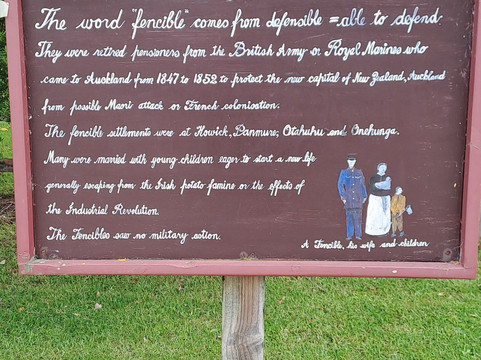 The word "fencible" comes from defensible = able to defend
They were retired pensioners from the British Army or Royal Marines who
came to Auckland from 1847 to 1852 to protect the new capital of New Zealand, Auckland
from possible Maori attack or French colonisation.
The fencible settlements were at Howick, Panmure, Otahuhu and Onehunga.
Many were married with young children eager to start a new life
generally escaping from the Irish potato famine or the effects of
the Industrial Revolution.
The Fencibles saw no military action.
A Fencible, his wife and children